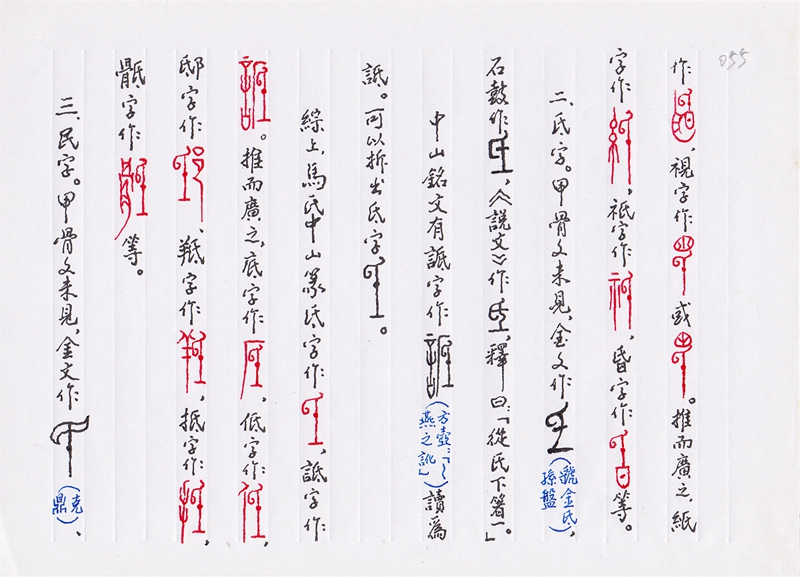 055
作,視字作或。推而廣之,紙
字作,祇字作,昏字作等。
二、氐字。甲骨文未見,金文作(虢金氏孫盤),
石鼓作,《說文》作,釋曰:「從氏下箸一。」
中山銘文有詆字作(方壺:「~燕之訛」)讀爲
詆。可以拆出氐字。
綜上,馬氏中山篆氐字作,詆字作
。推而廣之,底字作,低字作,
邸字作,羝字作,抵字作,
骶字作等。
三、民字。甲骨文未見,金文作(克鼎)、